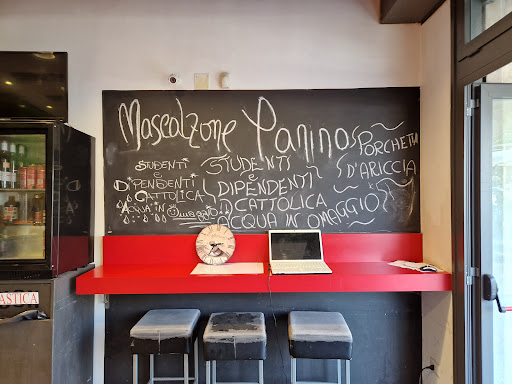 Mascalzone Panino
PORCHETTA
D'ARICCIA
STUDENTI
e
DIPENDENTI
CATTOLICA
ACQUA IN
OMAGGIO
STUDENTI
e
DIPENDENTI
CATTOLICA
ACQUA IN OMAGGIO
ASTICA